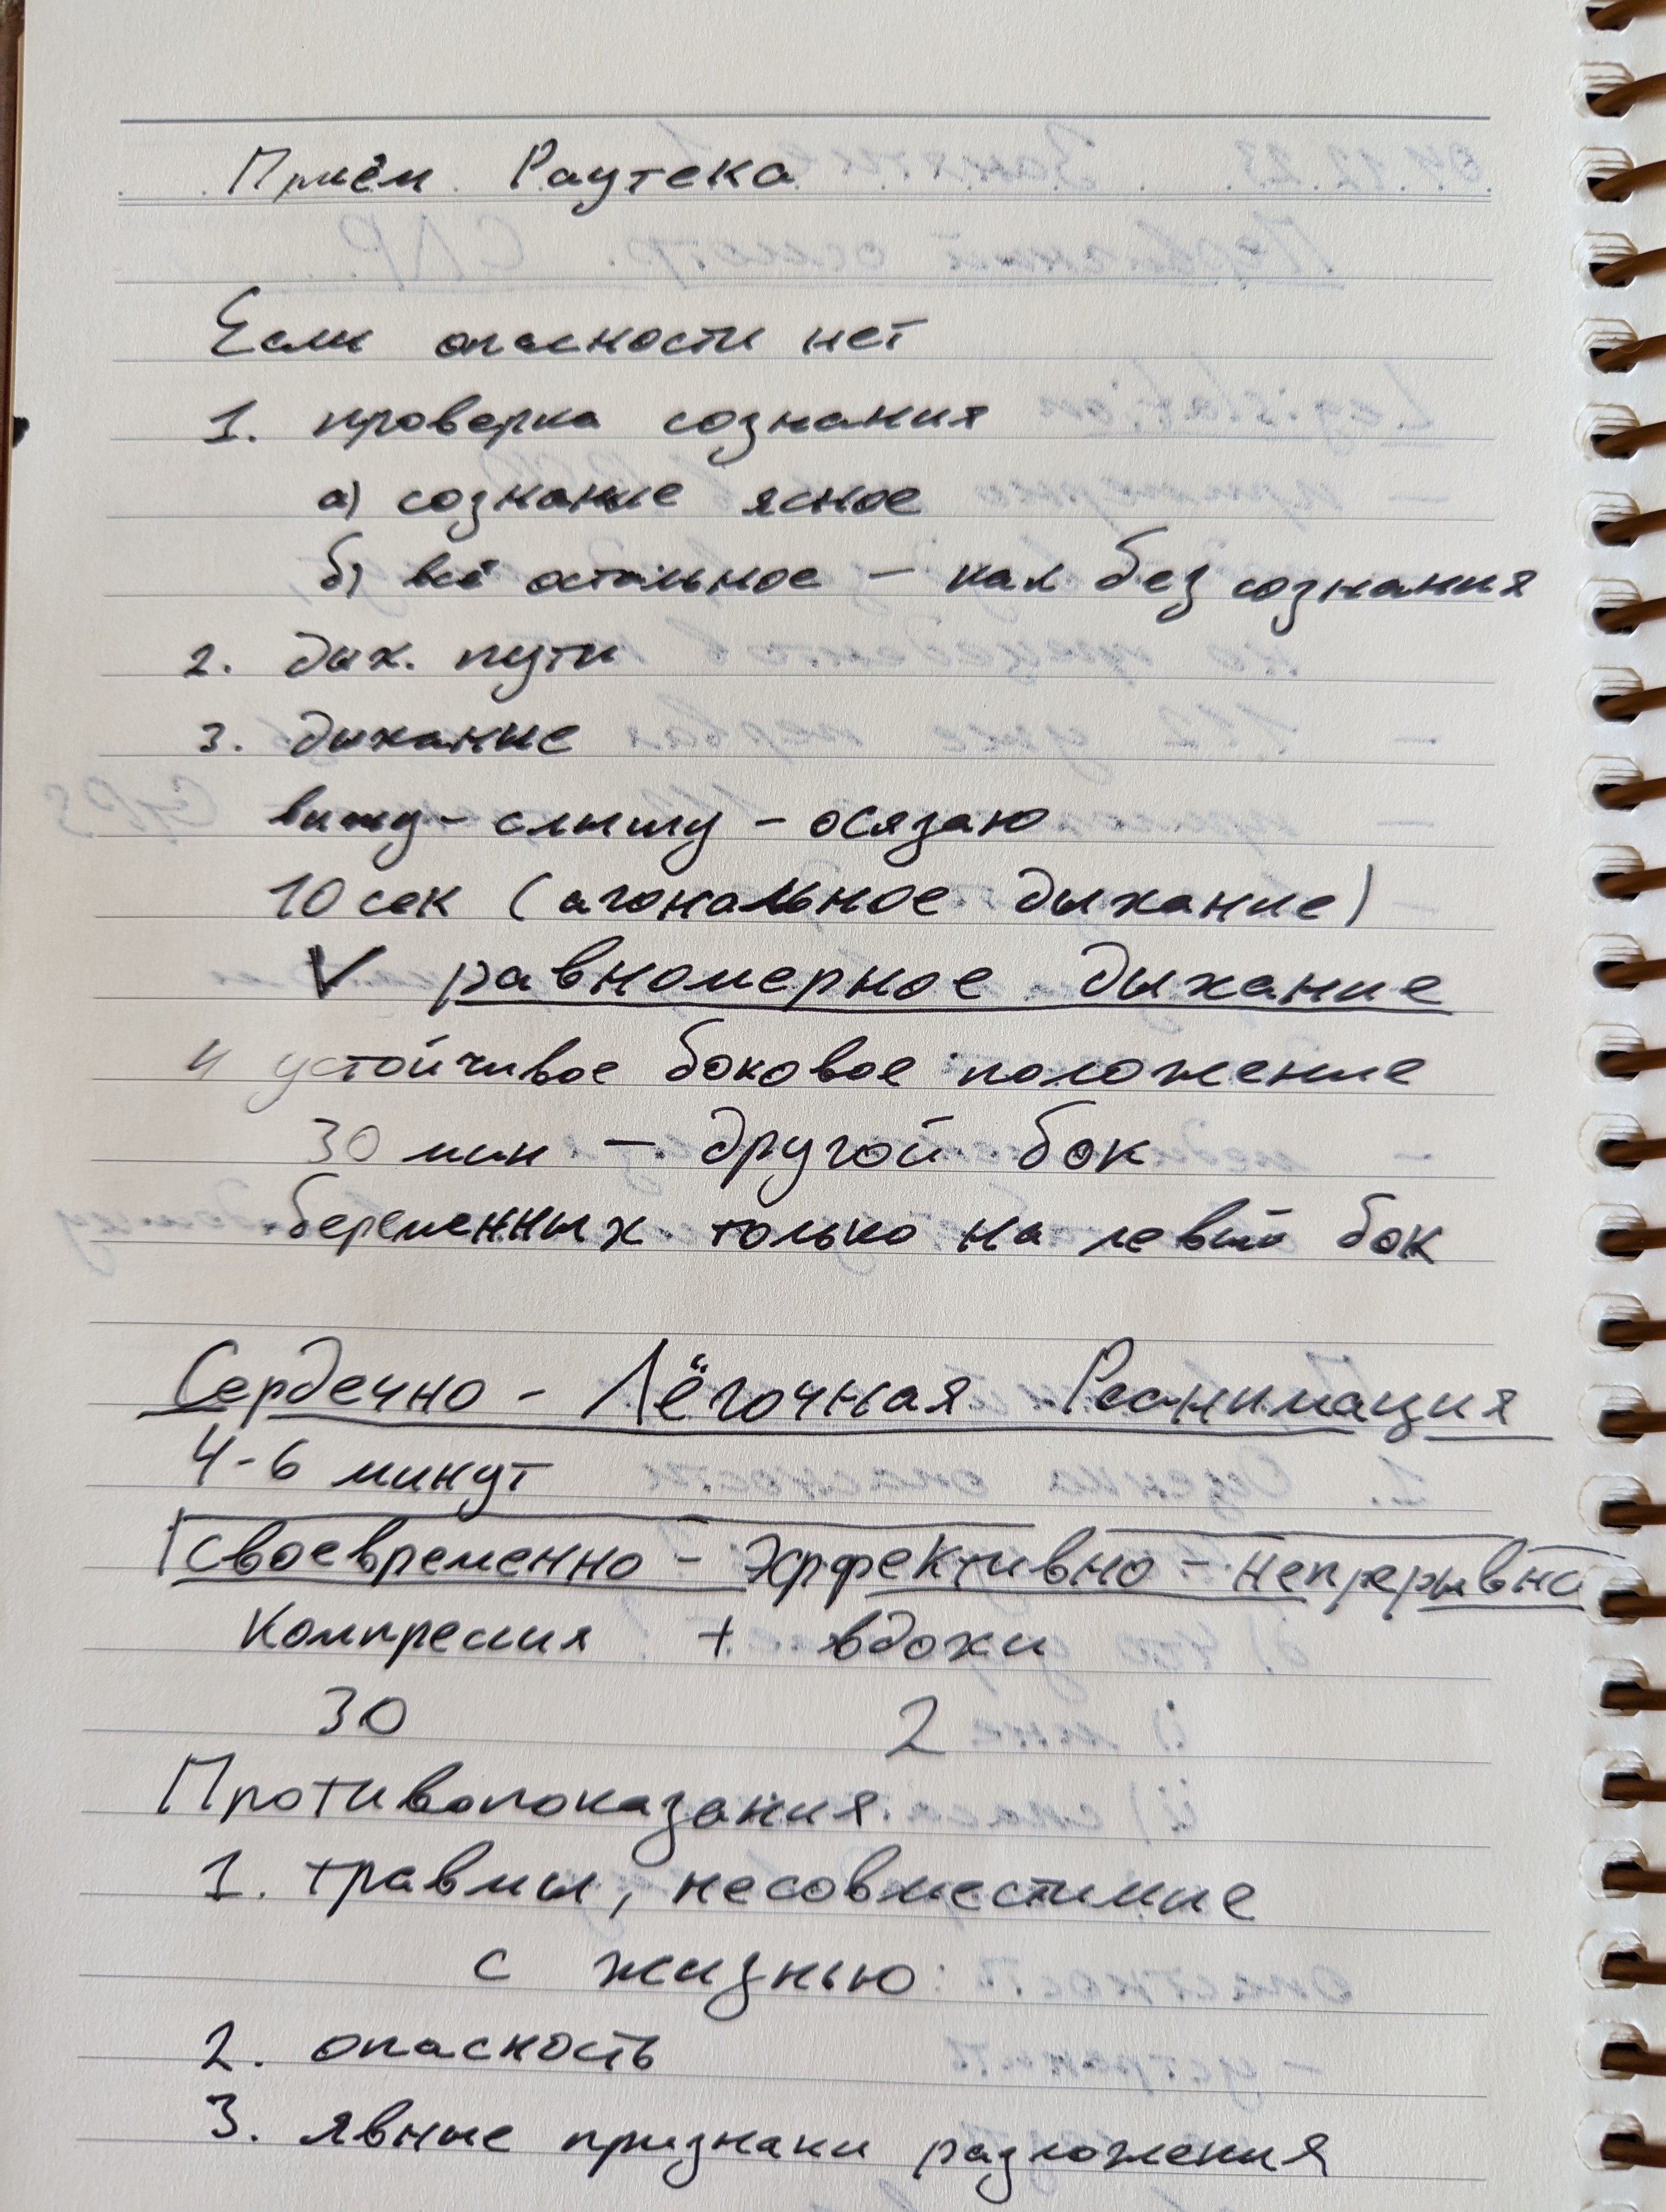 Приём Раутека
Если опасности нет
1. проверка сознания
а) сознание ясное
б) всё остальное – как без сознания
2. дых. пути
3. дыхание
вижу – слышу – осязаю
10 сек (агональное дыхание)
V равномерное дыхание
4 устойчивое боковое положение
30 мин – другой бок
беременных только на левый бок
Сердечно - Лёгочная Реанимация
4-6 минут
своевременно – эффективно – непрерывно
Компрессия + вдохи
30 2
Противопоказания
1. травмы, несовместимые
с жизнью
2. опасность
3. явные признаки разложения